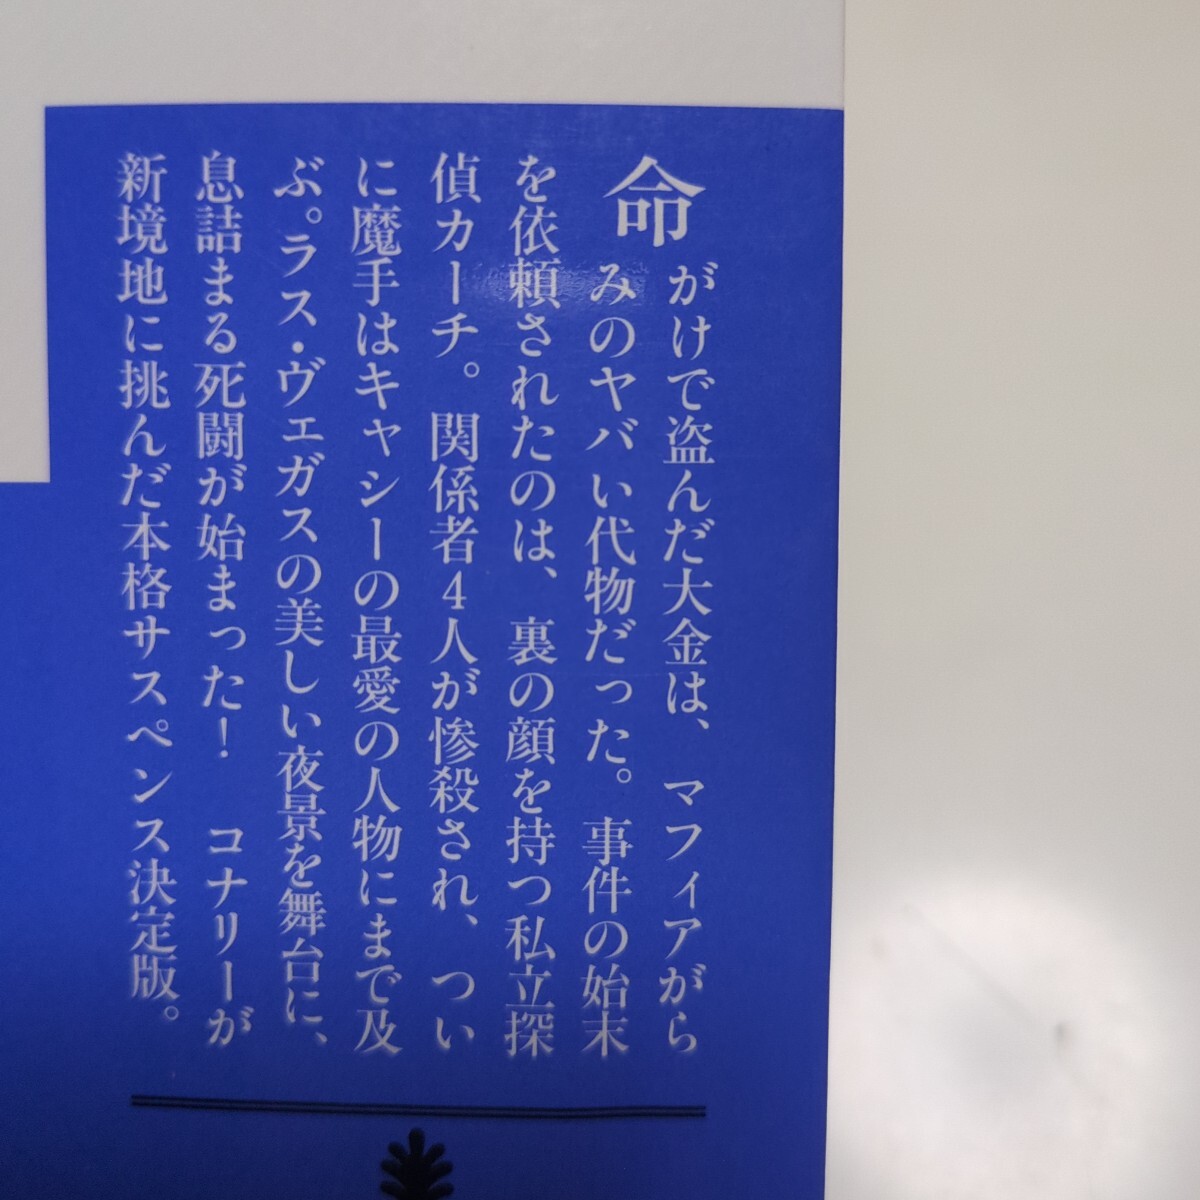 命がけで盗んだ大金は、マフィアがら
みのヤバい代物だった。事件の始末
を依頼されたのは、裏の顔を持つ私立探
偵カーチ。関係者4人が惨殺され、つい
に魔手はキャシーの最愛の人物にまで及
ぶ。ラス・ヴェガスの美しい夜景を舞台に、
息詰まる死闘が始まった！　コナリーが
新境地に挑んだ本格サスペンス決定版。